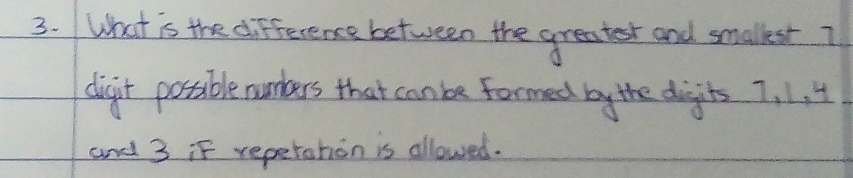 3. What is the difference between the greatest and smallest 7
digit possible numbers that can be formed by the digits 7, 1, 4
and 3 if repetation is allowed.